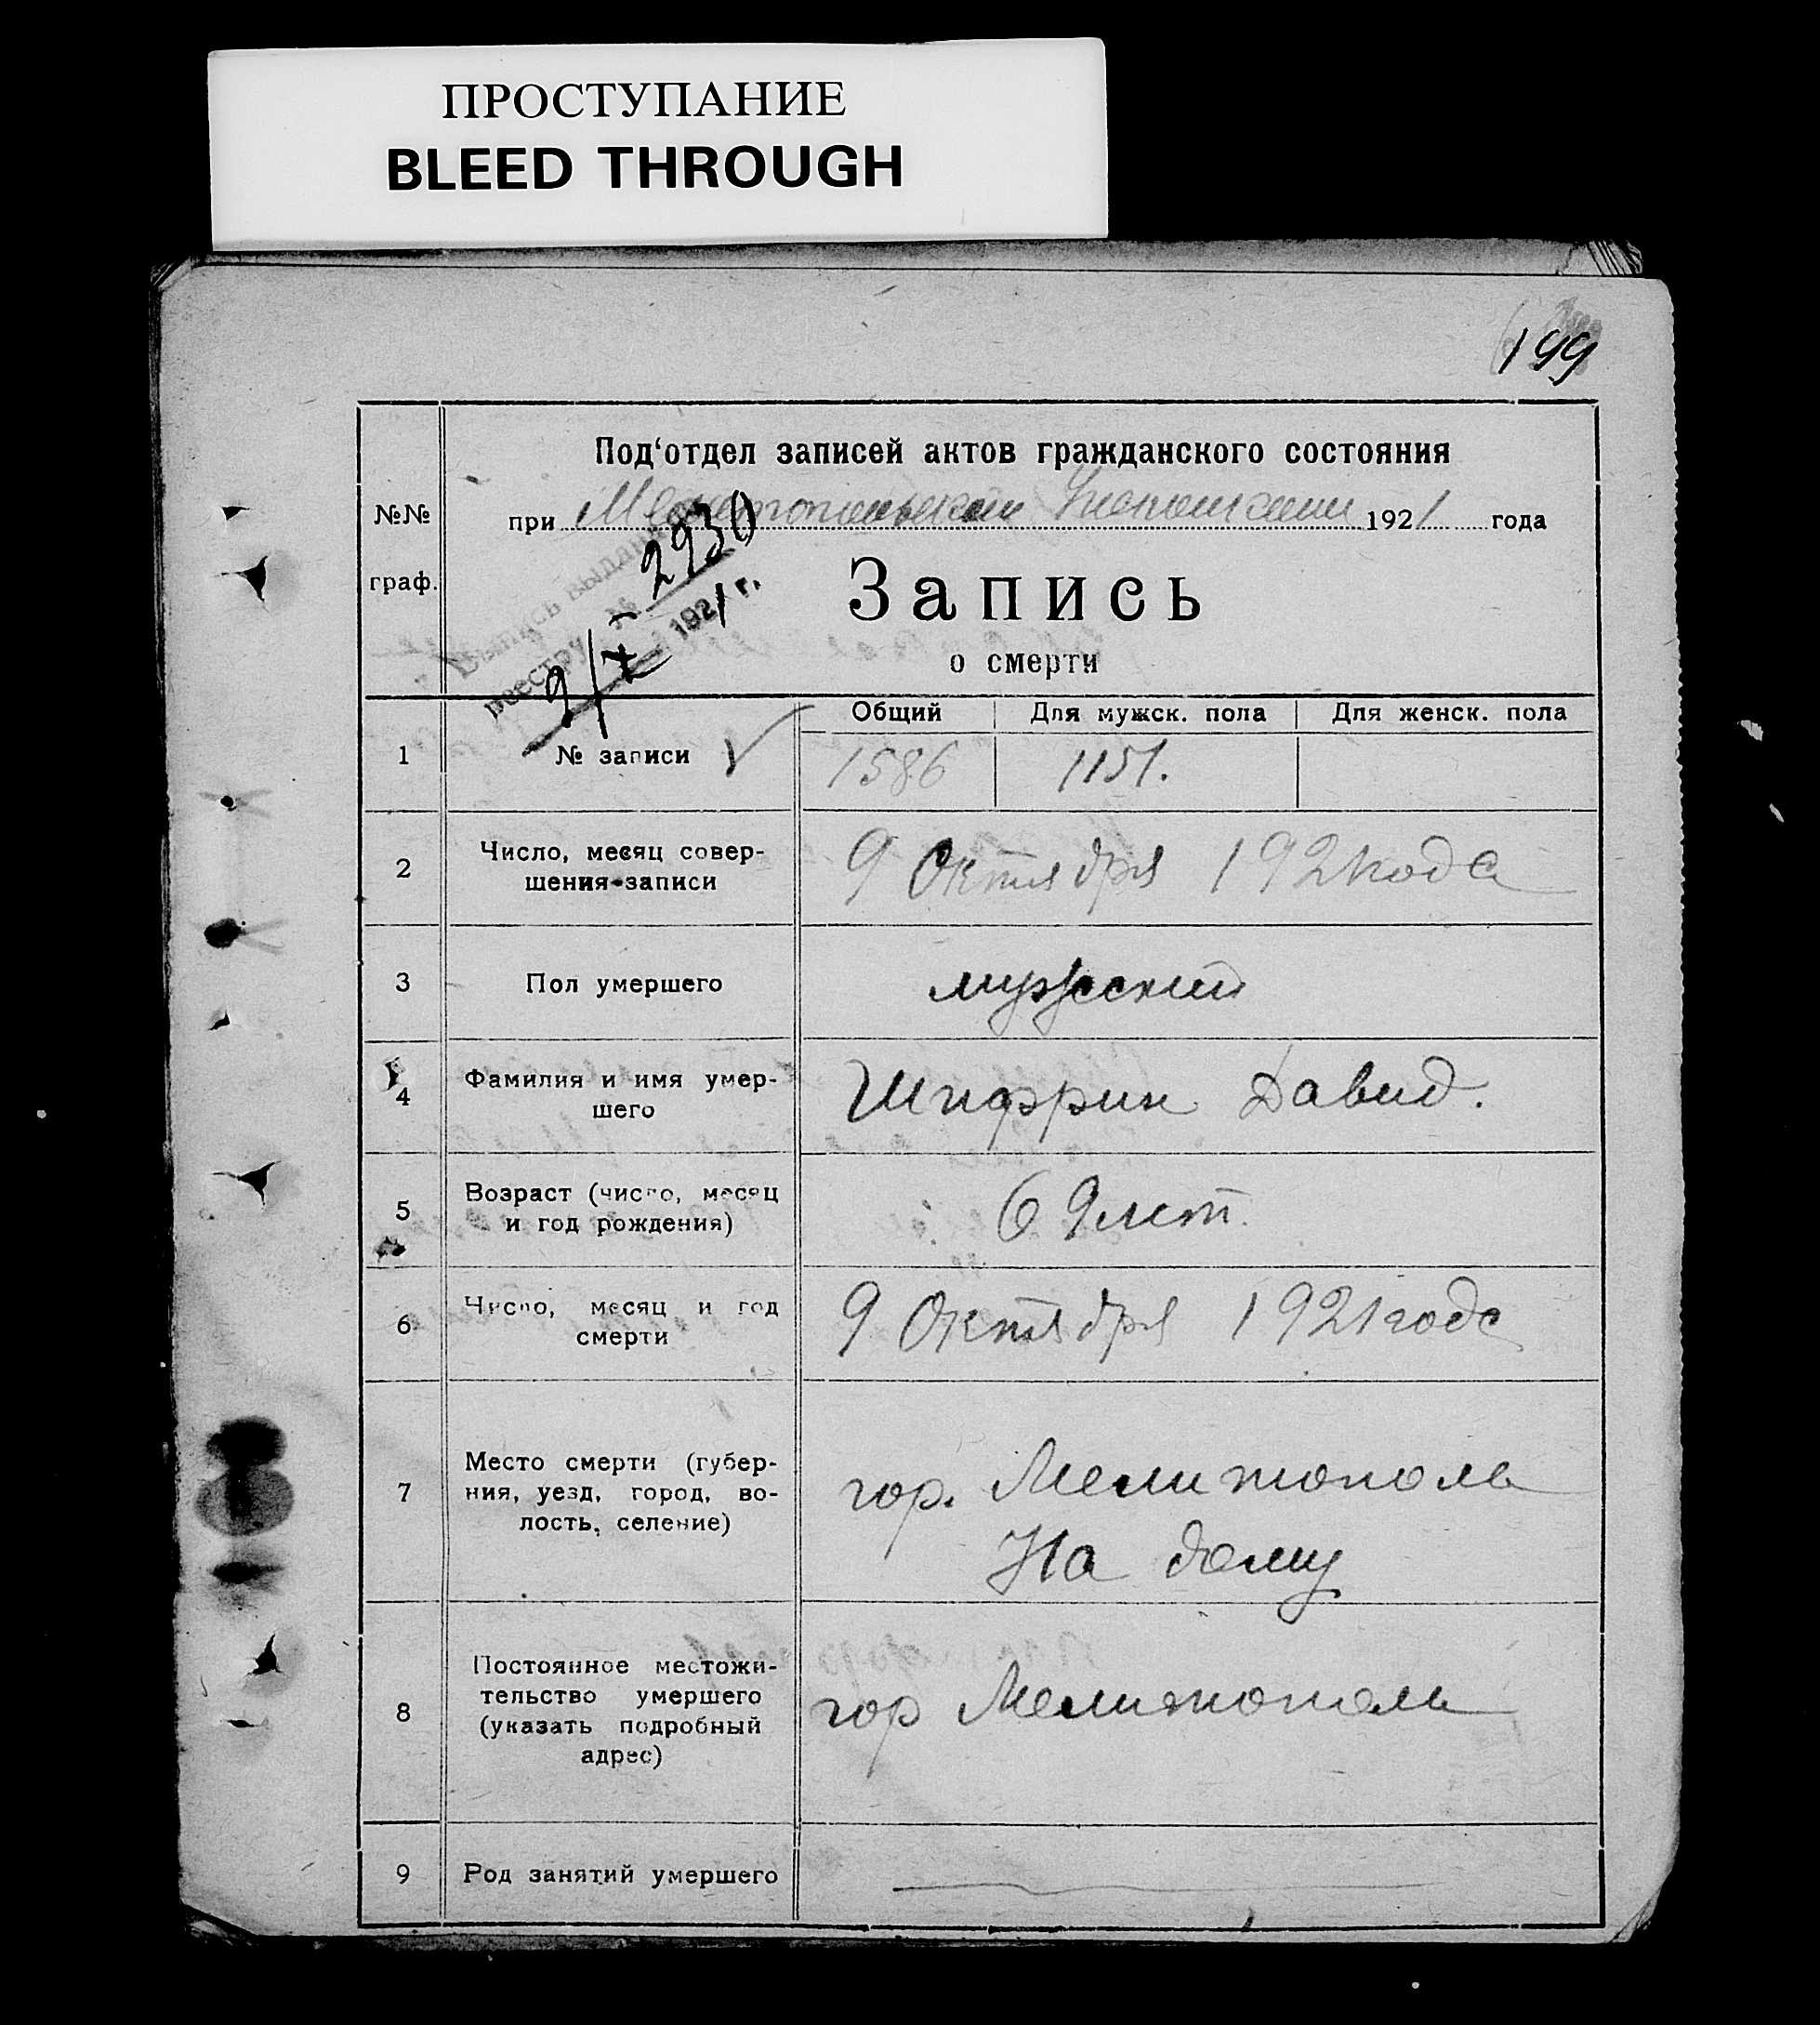 ПРОСТУПАНИЕ
BLEED THROUGH
199
№№
граф.
Под‘отдел записей актов гражданского состояния
при Мелитопольском Уисполкоме 1921 года
Выпись выдана
реестру № 2930
9/X 1921 г.
Запись
о смерти
Общий Для мужск. пола Для женск. пола
1 № записи 1586 1151.
2 Число, месяц совер-
шения записи
9 Октября 1921 года
3 Пол умершего мужской
4 Фамилия и имя умер-
шего
Шифрин Давид.
5 Возраст (число, месяц
и год рождения)
69 лет.
6 Число, месяц и год
смерти
9 Октября 1921 года
7 Место смерти (губер-
ния, уезд, город, во-
лость, селение)
гор. Мелитополь
На дому
8 Постоянное местожи-
тельство умершего
(указать подробный
адрес)
гор Мелитополь
9 Род занятий умершего